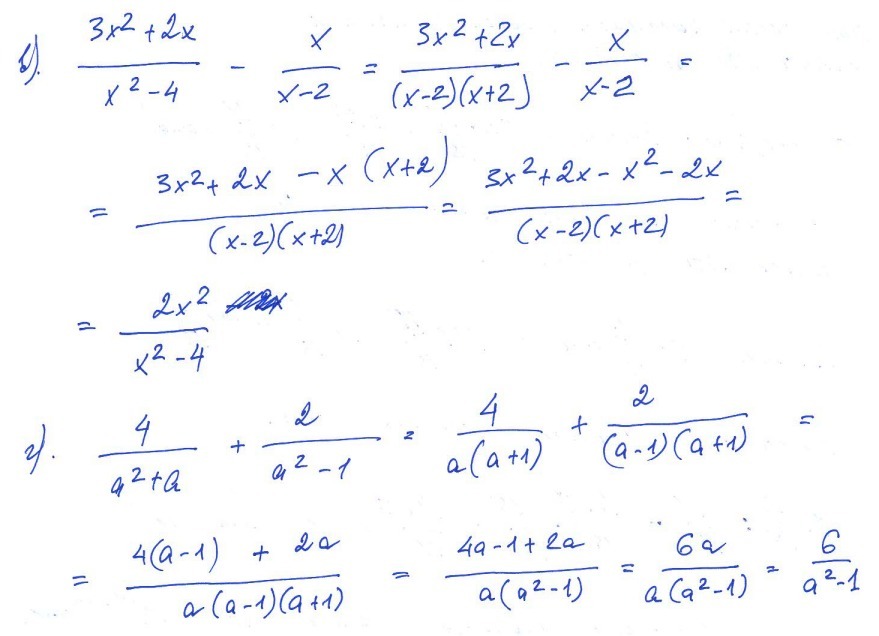 в). (3x² + 2x)/(x² - 4) - x/(x-2) = (3x² + 2x)/((x-2)(x+2)) - x/(x-2) =
= (3x² + 2x - x(x+2))/((x-2)(x+2)) = (3x² + 2x - x² - 2x)/((x-2)(x+2)) =
= 2x²/(x² - 4)
г). 4/(a² + a) + 2/(a² - 1) = 4/(a(a+1)) + 2/((a-1)(a+1)) =
= (4(a-1) + 2a)/(a(a-1)(a+1)) = (4a - 1 + 2a)/(a(a² - 1)) = 6a/(a(a² - 1)) = 6/(a² - 1)